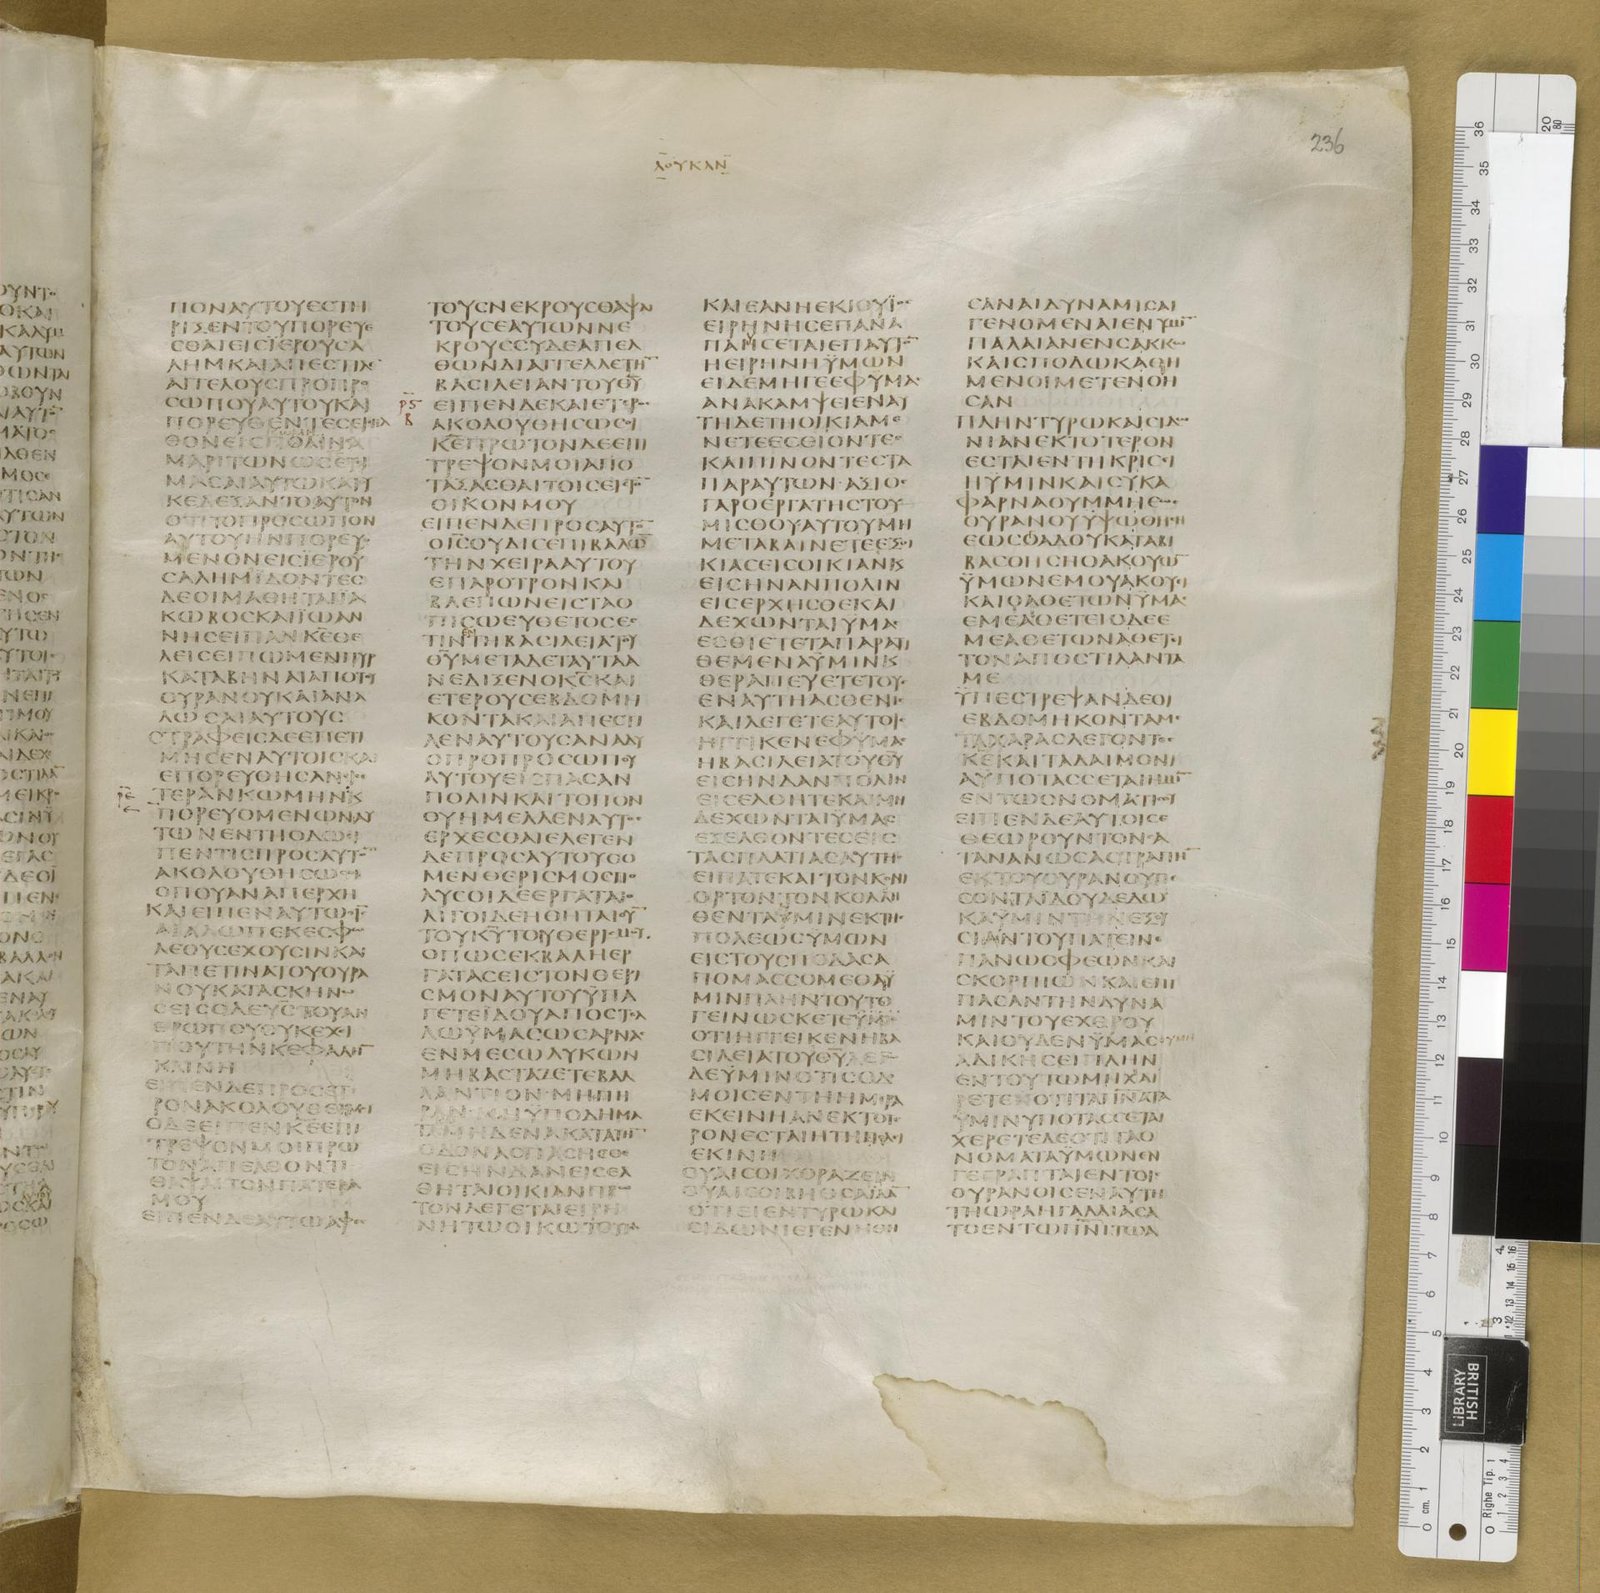 ΛΟΥΚΑΝ
236
ΠΟΝΑΥΤΟΥΕϹΤΗ
ΡΙϹΕΝΤΟΥΠΟΡΕΥε
ϹΘΑΙΕΙϹΪΕΡΟΥϹΑ
ΛΗΜΚΑΙΑΠΕϹΤΙΛε
ΑΓΓΕΛΟΥϹΠΡΟΠΡο
ϹΩΠΟΥΑΥΤΟΥΚΑΙ
ΠΟΡΕΥΘΕΝΤΕϹΕΙϹΗΛ
ΘΟΝΕΙϹΠΟΛΙΝϹΑ
ΜΑΡΙΤΩΝΩϹΕΤΙ
ΜΑϹΑΙΑΥΤΩΚΑΙΟΥ
ΚΕΔΕΞΑΝΤΟΑΥΤΟΝ
ΟΤΙΤΟΠΡΟϹΩΠΟΝ
ΑΥΤΟΥΗΝΠΟΡΕΥο
ΜΕΝΟΝΕΙϹΪΕΡΟΥ
ϹΑΛΗΜΪΔΟΝΤΕϹ
ΔΕΟΙΜΑΘΗΤΑΙΪΑ
ΚΩΒΟϹΚΑΙΪΩΑΝ
ΝΗϹΕΙΠΑΝΚΕΘΕ
ΛΕΙϹΕΙΠΩΜΕΝΠΥΡ
ΚΑΤΑΒΗΝΑΙΑΠΟΤΟΥ
ΟΥΡΑΝΟΥΚΑΙΑΝΑ
ΛΩϹΑΙΑΥΤΟΥϹ
ϹΤΡΑΦΕΙϹΔΕΕΠΕΤΙ
ΜΗϹΕΝΑΥΤΟΙϹΚΑΙ
ΕΠΟΡΕΥΘΗϹΑΝΕΙϹε
ΤΕΡΑΝΚΩΜΗΝΚ
ΠΟΡΕΥΟΜΕΝΩΝΑΥ
ΤΩΝΕΝΤΗΟΔΩΕΙ
ΠΕΝΤΙϹΠΡΟϹΑΥΤΟ
ΑΚΟΛΟΥΘΗϹΩϹΟΙ
ΟΠΟΥΑΝΑΠΕΡΧΗ
ΚΑΙΕΙΠΕΝΑΥΤΩΟΙϹ
ΑΙΑΛΩΠΕΚΕϹΦΩ
ΛΕΟΥϹΕΧΟΥϹΙΝΚΑΙ
ΤΑΠΕΤΙΝΑΤΟΥΟΥΡΑ
ΝΟΥΚΑΤΑϹΚΗΝω
ϹΕΙϹΟΔΕΥϹΤΟΥΑΝ
ΘΡΩΠΟΥΟΥΚΕΧΕΙ
ΠΟΥΤΗΝΚΕΦΑΛΗ
ΚΛΙΝΗ
ΕΙΠΕΝΔΕΠΡΟϹΕΤΕ
ΡΟΝΑΚΟΛΟΥΘΕΙΜΟΙ
ΟΔΕΕΙΠΕΝΚΕΕΠΙ
ΤΡΕΨΟΝΜΟΙΠΡΩ
ΤΟΝΑΠΕΛΘΟΝΤΙ
ΘΑΨΑΙΤΟΝΠΑΤΕΡΑ
ΜΟΥ
ΕΙΠΕΝΔΕΑΥΤΩΑΦεϲ
ΤΟΥϹΝΕΚΡΟΥϹΘΑΨΑΙ
ΤΟΥϹΕΑΥΤΩΝΝΕ
ΚΡΟΥϹϹΥΔΕΑΠΕΛ
ΘΩΝΔΙΑΓΓΕΛΛΕΤΗ
ΒΑϹΙΛΕΙΑΝΤΟΥΘΥ
ΕΙΠΕΝΔΕΚΑΙΕΤΕΡοϲ
ΑΚΟΛΟΥΘΗϹΩϹΟΙ
ΚΕΠΡΩΤΟΝΔΕΕΠΙ
ΤΡΕΨΟΝΜΟΙΑΠΟ
ΤΑΞΑϹΘΑΙΤΟΙϹΕΙϹΤΟ
ΟΙΚΟΝΜΟΥ
ΕΙΠΕΝΔΕΠΡΟϹΑΥΤΟ
ΟΙϹΟΥΔΙϹΕΠΙΒΑΛΩ
ΤΗΝΧΕΙΡΑΑΥΤΟΥ
ΕΠΑΡΟΤΡΟΝΚΑΙ
ΒΛΕΠΩΝΕΙϹΤΑΟ
ΠΙϹΩΕΥΘΕΤΟϹΕϲ
ΤΙΝΤΗΒΑϹΙΛΕΙΑΤΟΥ
ΘΥΜΕΤΑΔΕΤΑΥΤΑΑ
ΝΕΔΙΞΕΝΟΚϹΚΑΙ
ΕΤΕΡΟΥϹΕΒΔΟΜΗ
ΚΟΝΤΑΚΑΙΑΠΕϹΤΙ
ΛΕΝΑΥΤΟΥϹΑΝΑΔΥ
ΟΠΡΟΠΡΟϹΩΠΟΥ
ΑΥΤΟΥΕΙϹΠΑϹΑΝ
ΠΟΛΙΝΚΑΙΤΟΠΟΝ
ΟΥΗΜΕΛΛΕΝΑΥΤοϲ
ΕΡΧΕϹΘΑΙΕΛΕΓΕΝ
ΔΕΠΡΟϹΑΥΤΟΥϹΟ
ΜΕΝΘΕΡΙϹΜΟϹΠο
ΛΥϹΟΙΔΕΕΡΓΑΤΑΙο
ΛΙΓΟΙΔΕΗΘΗΤΑΙΟΥ
ΤΟΥΚΥΤΟΥΘΕΡΙϲμου
ΟΠΩϹΕΚΒΑΛΗΕΡ
ΓΑΤΑϹΕΙϹΤΟΝΘΕΡΙ
ϹΜΟΝΑΥΤΟΥΫΠΑ
ΓΕΤΕΪΔΟΥΑΠΟϹΤε
ΛΩΫΜΑϹΩϹΑΡΝΑϲ
ΕΝΜΕϹΩΛΥΚΩΝ
ΜΗΒΑϹΤΑΖΕΤΕΒΑΛ
ΛΑΝΤΙΟΝΜΗΠΗ
ΡΑΝΜΗΥΠΟΔΗΜΑ
ΤΑΜΗΔΕΝΑΚΑΤΑΤΗ
ΟΔΟΝΑϹΠΑϹΗϹΘε
ΕΙϹΗΝΔΑΝΕΙϹΕΛ
ΘΗΤΑΙΟΙΚΙΑΝΠΡω
ΤΟΝΛΕΓΕΤΑΙΕΙΡΗ
ΝΗΤΩΟΙΚΩΤΟΥΤω
ΚΑΙΕΑΝΗΕΚΙΟΥΪοϲ
ΕΙΡΗΝΗϹΕΠΑΝΑ
ΠΑΗϹΕΤΑΙΕΠΑΥΤΟ
ΗΕΙΡΗΝΗΫΜΩΝ
ΕΙΔΕΜΗΓΕΕΦΥΜΑϲ
ΑΝΑΚΑΜΨΕΙΕΝΑΥ
ΤΗΔΕΤΗΟΙΚΙΑΜε
ΝΕΤΕΕϹΘΙΟΝΤΕϲ
ΚΑΙΠΙΝΟΝΤΕϹΤΑ
ΠΑΡΑΥΤΩΝΑΞΙΟϲ
ΓΑΡΟΕΡΓΑΤΗϹΤΟΥ
ΜΙϹΘΟΥΑΥΤΟΥΜΗ
ΜΕΤΑΒΑΙΝΕΤΕΕΞΟΙ
ΚΙΑϹΕΙϹΟΙΚΙΑΝΚ
ΕΙϹΗΝΑΝΠΟΛΙΝ
ΕΙϹΕΡΧΗϹΘΕΚΑΙ
ΔΕΧΩΝΤΑΙΥΜΑϲ
ΕϹΘΙΕΤΕΤΑΠΑΡΑΤΙ
ΘΕΜΕΝΑΫΜΙΝΚ
ΘΕΡΑΠΕΥΕΤΕΤΟΥϲ
ΕΝΑΥΤΗΑϹΘΕΝΙϲ
ΚΑΙΛΕΓΕΤΕΑΥΤΟΙϲ
ΗΓΓΙΚΕΝΕΦΥΜΑϲ
ΗΒΑϹΙΛΕΙΑΤΟΥΘΥ
ΕΙϹΗΝΔΑΝΠΟΛΙΝ
ΕΙϹΕΛΘΗΤΕΚΑΙΜΗ
ΔΕΧΩΝΤΑΙΥΜΑϹ
ΕΞΕΛΘΟΝΤΕϹΕΙϹ
ΤΑϹΠΛΑΤΙΑϹΑΥΤΗϲ
ΕΙΠΑΤΕΚΑΙΤΟΝΚΟΝΙ
ΟΡΤΟΝΤΟΝΚΟΛΛΗ
ΘΕΝΤΑΫΜΙΝΕΚΤΗϲ
ΠΟΛΕΩϹΥΜΩΝ
ΕΙϹΤΟΥϹΠΟΔΑϹΑ
ΠΟΜΑϹϹΟΜΕΘΑΫ
ΜΙΝΠΛΗΝΤΟΥΤΟ
ΓΕΙΝΩϹΚΕΤΕΫΜΙ
ΟΤΙΗΓΓΕΙΚΕΝΗΒΑ
ϹΙΛΕΙΑΤΟΥΘΥΛΕΓΩ
ΔΕΫΜΙΝΟΤΙϹΟΔΟ
ΜΟΙϹΕΝΤΗΗΜΕΡΑ
ΕΚΕΙΝΗΑΝΕΚΤΟΤε
ΡΟΝΕϹΤΑΙΗΤΗΠΟΛΙ
ΕΚΙΝΗ
ΟΥΑΙϹΟΙΧΟΡΑΖΕΙΝ
ΟΥΑΙϹΟΙΒΗΘϹΑΪΔΑ
ΟΤΙΕΙΕΝΤΥΡΩΚΑΙ
ϹΙΔΩΝΙΕΓΕΝΗΘΗ
ϹΑΝΑΙΔΥΝΑΜΙϹΑΙ
ΓΕΝΟΜΕΝΑΙΕΝΥΜΙ
ΠΑΛΑΙΑΝΕΝϹΑΚΚω
ΚΑΙϹΠΟΔΩΚΑΘΗ
ΜΕΝΟΙΜΕΤΕΝΟΗ
ϹΑΝ
ΠΛΗΝΤΥΡΩΚΑΙϹΙΔω
ΝΙΑΝΕΚΤΟΤΕΡΟΝ
ΕϹΤΑΙΕΝΤΗΚΡΙϹΕΙ
ΗΥΜΙΝΚΑΙϹΥΚΑ
ΦΑΡΝΑΟΥΜΜΗΕωϲ
ΟΥΡΑΝΟΥΫΨΩΘΗϹΗ
ΕΩϹΑΔΟΥΚΑΤΑΒΙ
ΒΑϹΘΗϹΗΟΑΚΟΥΩ
ΫΜΩΝΕΜΟΥΑΚΟΥΕΙ
ΚΑΙΟΑΘΕΤΩΝΫΜΑϲ
ΕΜΕΑΘΕΤΕΙΟΔΕΕ
ΜΕΑΘΕΤΩΝΑΘΕΤΕΙ
ΤΟΝΑΠΟϹΤΙΛΑΝΤΑ
ΜΕ
ΫΠΕϹΤΡΕΨΑΝΔΕΟΙ
ΕΒΔΟΜΗΚΟΝΤΑΜε
ΤΑΧΑΡΑϹΛΕΓΟΝΤεϲ
ΚΕΚΑΙΤΑΔΑΙΜΟΝΙ
ΑΫΠΟΤΑϹϹΕΤΑΙΗΜΙ
ΕΝΤΩΟΝΟΜΑΤΙϹΟΥ
ΕΙΠΕΝΔΕΑΥΤΟΙϹΕ
ΘΕΩΡΟΥΝΤΟΝϹΑ
ΤΑΝΑΝΩϹΑϹΤΡΑΠΗ
ΕΚΤΟΥΟΥΡΑΝΟΥΠε
ϹΟΝΤΑΪΔΟΥΔΕΔΩ
ΚΑΫΜΙΝΤΗΝΕΞΟΥ
ϹΙΑΝΤΟΥΠΑΤΕΙΝε
ΠΑΝΩΟΦΕΩΝΚΑΙ
ϹΚΟΡΠΙΩΝΚΑΙΕΠΙ
ΠΑϹΑΝΤΗΝΔΥΝΑ
ΜΙΝΤΟΥΕΧΘΡΟΥ
ΚΑΙΟΥΔΕΝΫΜΑϹΟΥΜΗ
ΑΔΙΚΗϹΕΙΠΛΗΝ
ΕΝΤΟΥΤΩΜΗΧΑΙ
ΡΕΤΕΟΤΙΤΑΠΝΑΤΑ
ΥΜΙΝΥΠΟΤΑϹϹΕΤΑΙ
ΧΕΡΕΤΕΔΕΟΤΙΤΑΟ
ΝΟΜΑΤΑΥΜΩΝΕΝ
ΓΕΓΡΑΠΤΑΙΕΝΤΟΙϲ
ΟΥΡΑΝΟΙϹΕΝΑΥΤΗ
ΤΗΩΡΑΗΓΑΛΛΙΑϹΑ
ΤΟΕΝΤΩΠΝΙΤΩΑ
BRITISH
LIBRARY
Righe Tip.
cm.